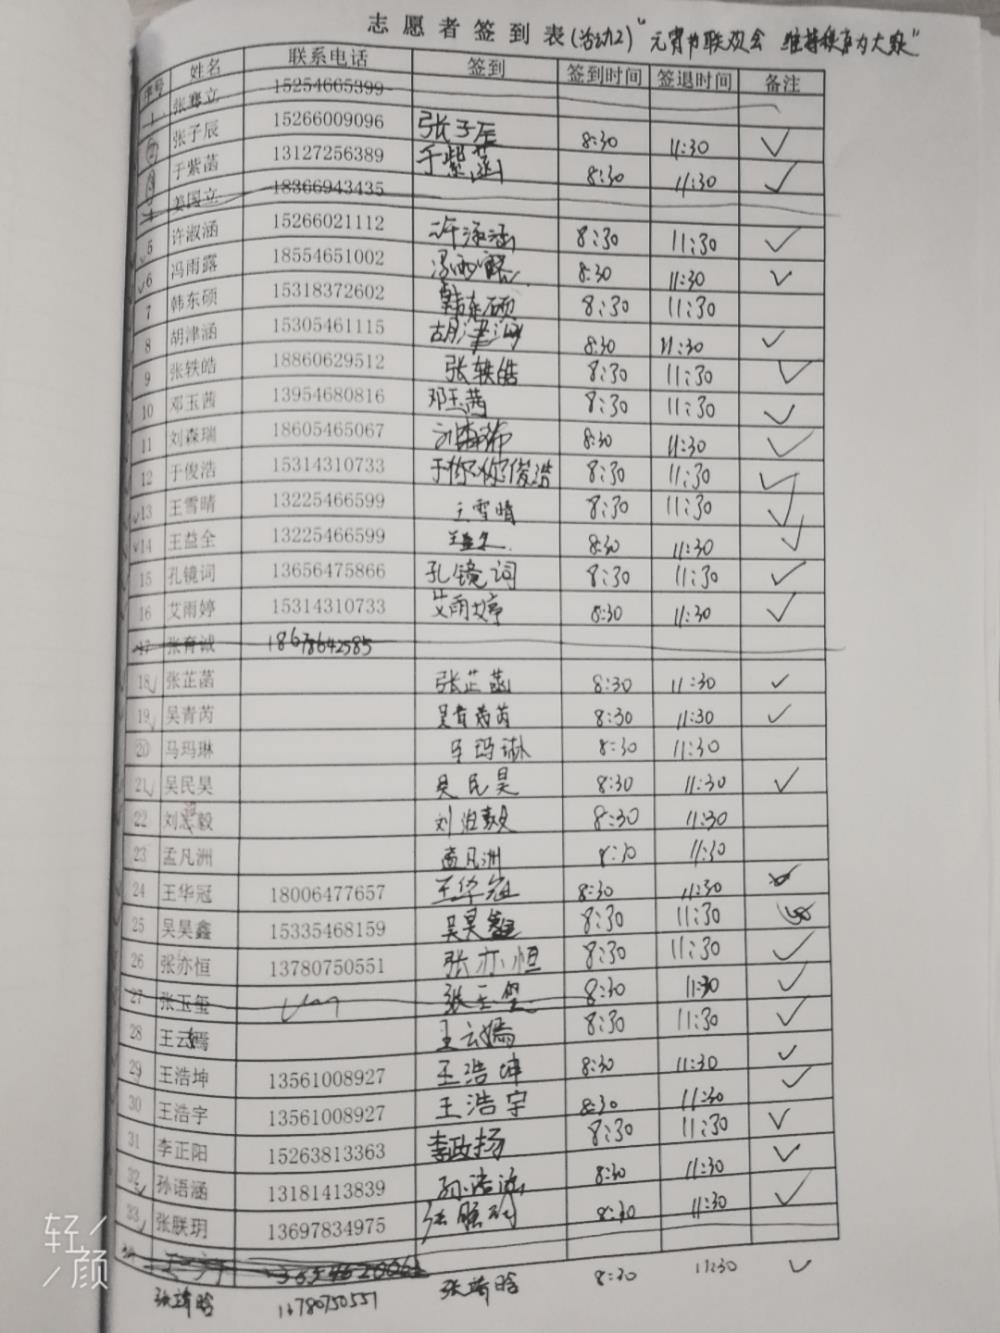 志愿者签到表(活动2)"元宵节联欢会 维持秩序为大家"
序号 姓名 联系电话 签到 签到时间 签退时间 备注
1 张骞立 15254665399
2 张子辰 15266009096 张子辰 8:30 11:30 ✓
3 于紫菡 13127256389 于紫菡 8:30 11:30 ✓
4 姜国立 18366943435
5 许淑涵 15266021112 许淑涵 8:30 11:30 ✓
✓6 冯雨露 18554651002 冯雨露 8:30 11:30 ✓
7 韩东硕 15318372602 韩东硕 8:30 11:30
8 胡津涵 15305461115 胡津涵 8:30 11:30 ✓
9 张轶皓 18860629512 张轶皓 8:30 11:30 ✓
10 邓玉茜 13954680816 邓玉茜 8:30 11:30 ✓
11 刘森瑞 18605465067 刘森瑞 8:30 11:30 ✓
12 于俊浩 15314310733 于俊浩 8:30 11:30 ✓
✓13 王雪晴 13225466599 王雪晴 8:30 11:30 ✓
✓14 王益全 13225466599 王益全 8:30 11:30 ✓
15 孔镜词 13656475866 孔镜词 8:30 11:30 ✓
16 艾雨婷 15314310733 艾雨婷 8:30 11:30 ✓
17 张育诚 18678642585
18✓ 张芷菡 张芷菡 8:30 11:30 ✓
19✓ 吴青芮 吴青芮 8:30 11:30 ✓
20 马玛琳 马玛琳 8:30 11:30
21✓ 吴民昊 吴民昊 8:30 11:30 ✓
22 刘 毅 刘 8:30 11:30
23 孟凡洲 孟凡洲 8:30 11:30
24 王华冠 18006477657 王华冠 8:30 11:30
25 吴昊鑫 15335468159 吴昊鑫 8:30 11:30
26 张亦恒 13780750551 张亦恒 8:30 11:30 ✓
27 张玉玺 张玉玺 8:30 11:30 ✓
28 王云嫣 王云嫣 8:30 11:30 ✓
29 王浩坤 13561008927 王浩坤 8:30 11:30 ✓
30 王浩宇 13561008927 王浩宇 8:30 11:30 ✓
31 李正阳 15263813363 李政扬 8:30 11:30 ✓
32✓ 孙语涵 13181413839 孙语涵 8:30 11:30 ✓
33✓ 张朕玥 13697834975 张朕玥 8:30 11:30 ✓
张靖晗 13780750551 张靖晗 8:30 11:30 ✓
轻颜